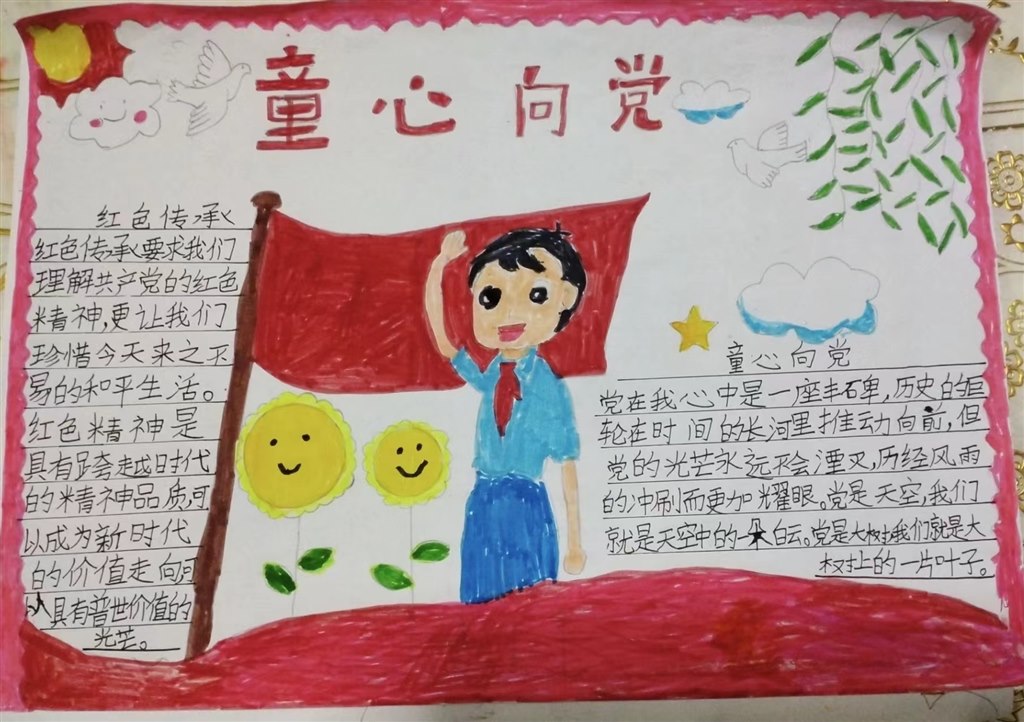 童心向党
红色传承
红色传承要求我们
理解共产党的红色
精神,更让我们
珍惜今天来之不
易的和平生活。
红色精神是
具有跨越时代
的精神品质,可
以成为新时代
的价值走向可
以具有普世价值的
光芒。
童心向党
党在我心中是一座丰碑,历史的巨
轮在时间的长河里推动向前,但
党的光芒永远不会湮灭,历经风雨
的冲刷而更加耀眼。党是天空,我们
就是天空中的一朵白云。党是大树我们就是大
树上的一片叶子。